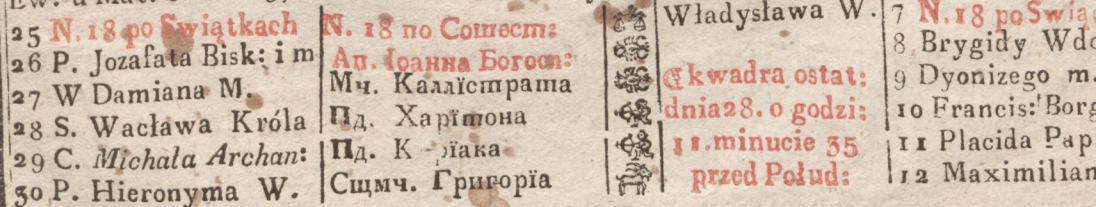 25 N. 18 po Swiątkach
26 P. Jozafata Bisk: i m
27 W Damiana M.
28 S. Wacława Króla
29 C. Michała Archan:
30 P. Hieronyma W.
N. 18 по Сошест:
Ап. Іоанна Богосл:
Мч. Каллїстрата
Пд. Харїтона
Пд. К рїака
Сщмч. Григорїа
Władysława W.
kwadra ostat:
dnia 28. o godzi:
11. minucie 35
przed Połud:
7 N. 18 po Swią
8 Brygidy Wdo
9 Dyonizego m.
10 Francis: Borg
11 Placida Pap
12 Maximilian